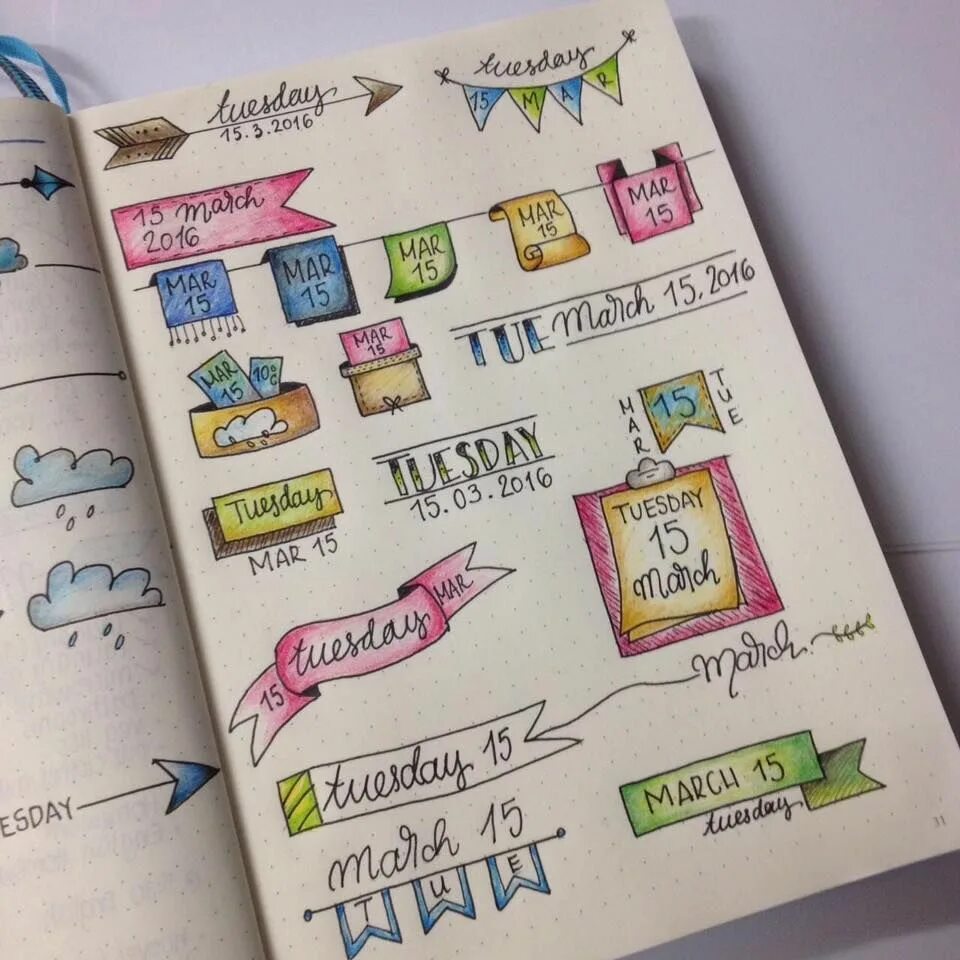 tuesday
15.3.2016
tuesday
15 M A R
15 March
2016
MAR
15
MAR
15
MAR
15
MAR
15
MAR
15
MAR
15
10°C
MAR
15
TUE March 15, 2016
MAR 15 TUE
TUESDAY
15.03.2016
Tuesday
MAR 15
TUESDAY
15
March
15 tuesday MAR
tuesday 15
March
March 15
TUE
MARCH 15
tuesday
ESDAY
31